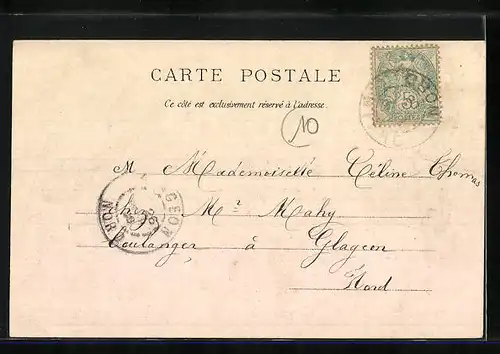 CARTE POSTALE
Ce côté est exclusivement réservé à l'adresse.
10
M, Mademoiselle Céline Thomas
Mr Mahy
Boulanger à Glageon
Nord
GEON
NORD